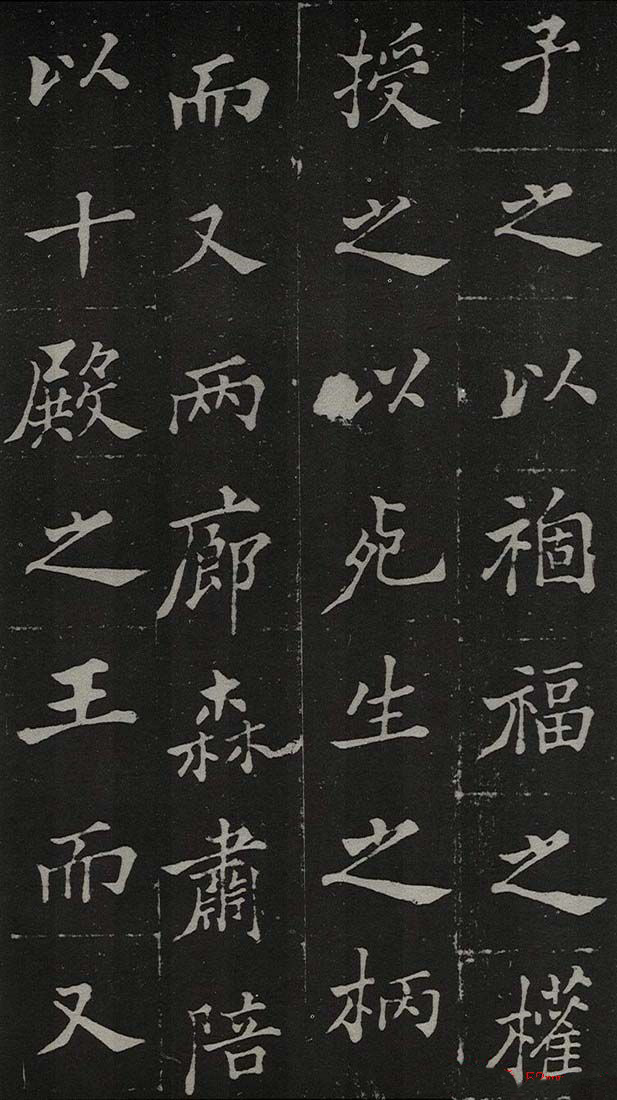 予之以禍福之權
授之以死生之柄
而又兩廊森肅陪
以十殿之王而又